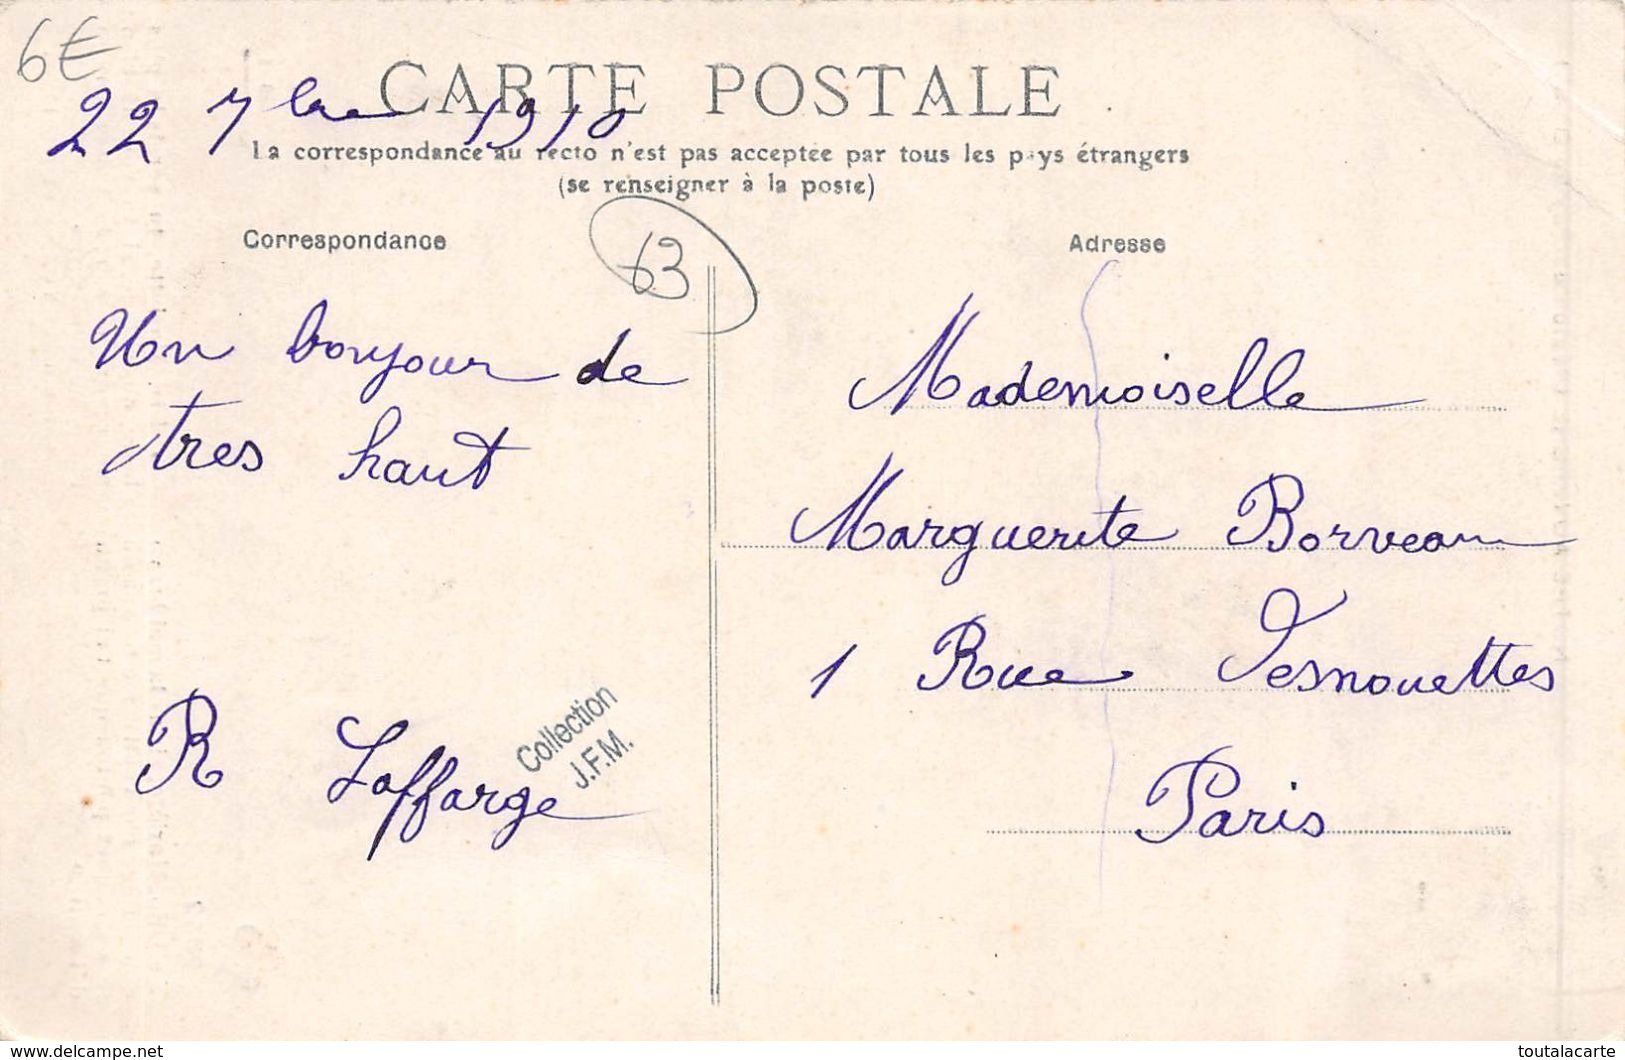 6€
CARTE POSTALE
22 7bre 1910
La correspondance au recto n'est pas acceptée par tous les pays étrangers
(se renseigner à la poste)
Correspondance
63
Adresse
Un bonjour de
tres haut
R Laffarge
Collection
J.F.M.
Mademoiselle
Marguerite Borveau
1 Rue Desnouettes
Paris
www.delcampe.net
toutalacarte